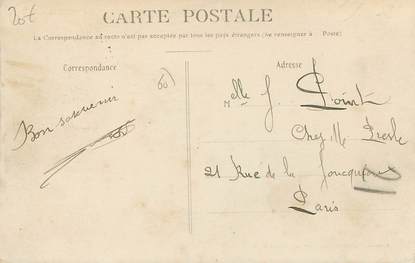 Lot
CARTE POSTALE
La Correspondance au recto n'est pas acceptée par tous les pays étrangers (Se renseigner à la Poste)
Correspondance
60
Bon souvenir
Adresse
Melle J. Point
Chez Mr
21 Rue de la
Paris